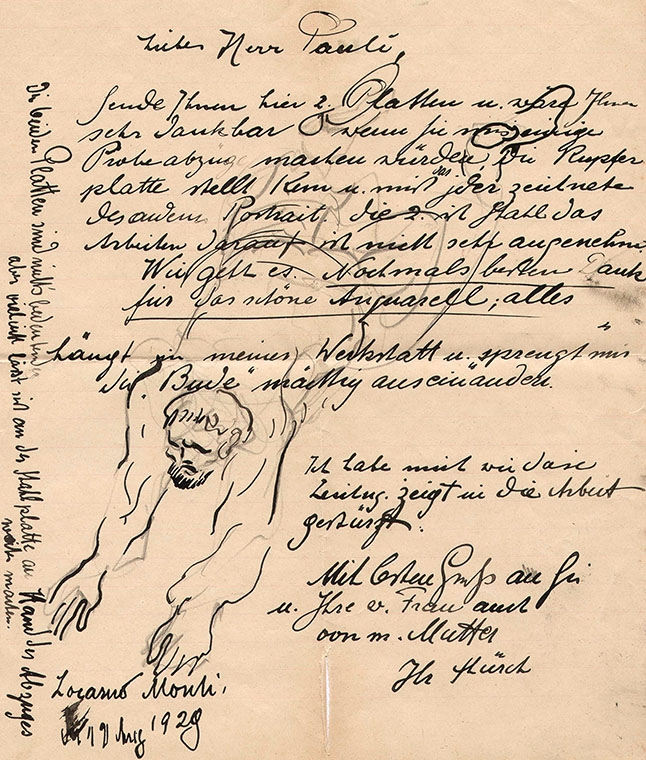 Lieber Herr Pauli,
Sende Ihnen hier 2. Platten u. wäre Ihnen
sehr dankbar wenn Sie mir einige
Probeabzüge machen würden. Die Kupfer
platte stellt Rem u. mich
Portrait, die 2. ist Stahl das
Arbeiten darauf ist nicht sehr angenehm.
Wie geht es. Nochmals besten Dank
für das schöne Aquarell, alles
hängt in meiner Werkstatt u. sprengt mir
die "Bude" mächtig auseinander.
Ich habe mich wie diese
Zeichng. zeigt in die Arbeit
gestürzt.
Mit besten Gruss an Sie
u. Ihre w. Frau auch
von m. Mutter
Ihr
Locarno Monti,
Aug 1928
Die beiden Platten sind nicht bedeutend
aber vielleicht lässt sich an der Stahlplatte an Hand des Abzuges
weiter machen.